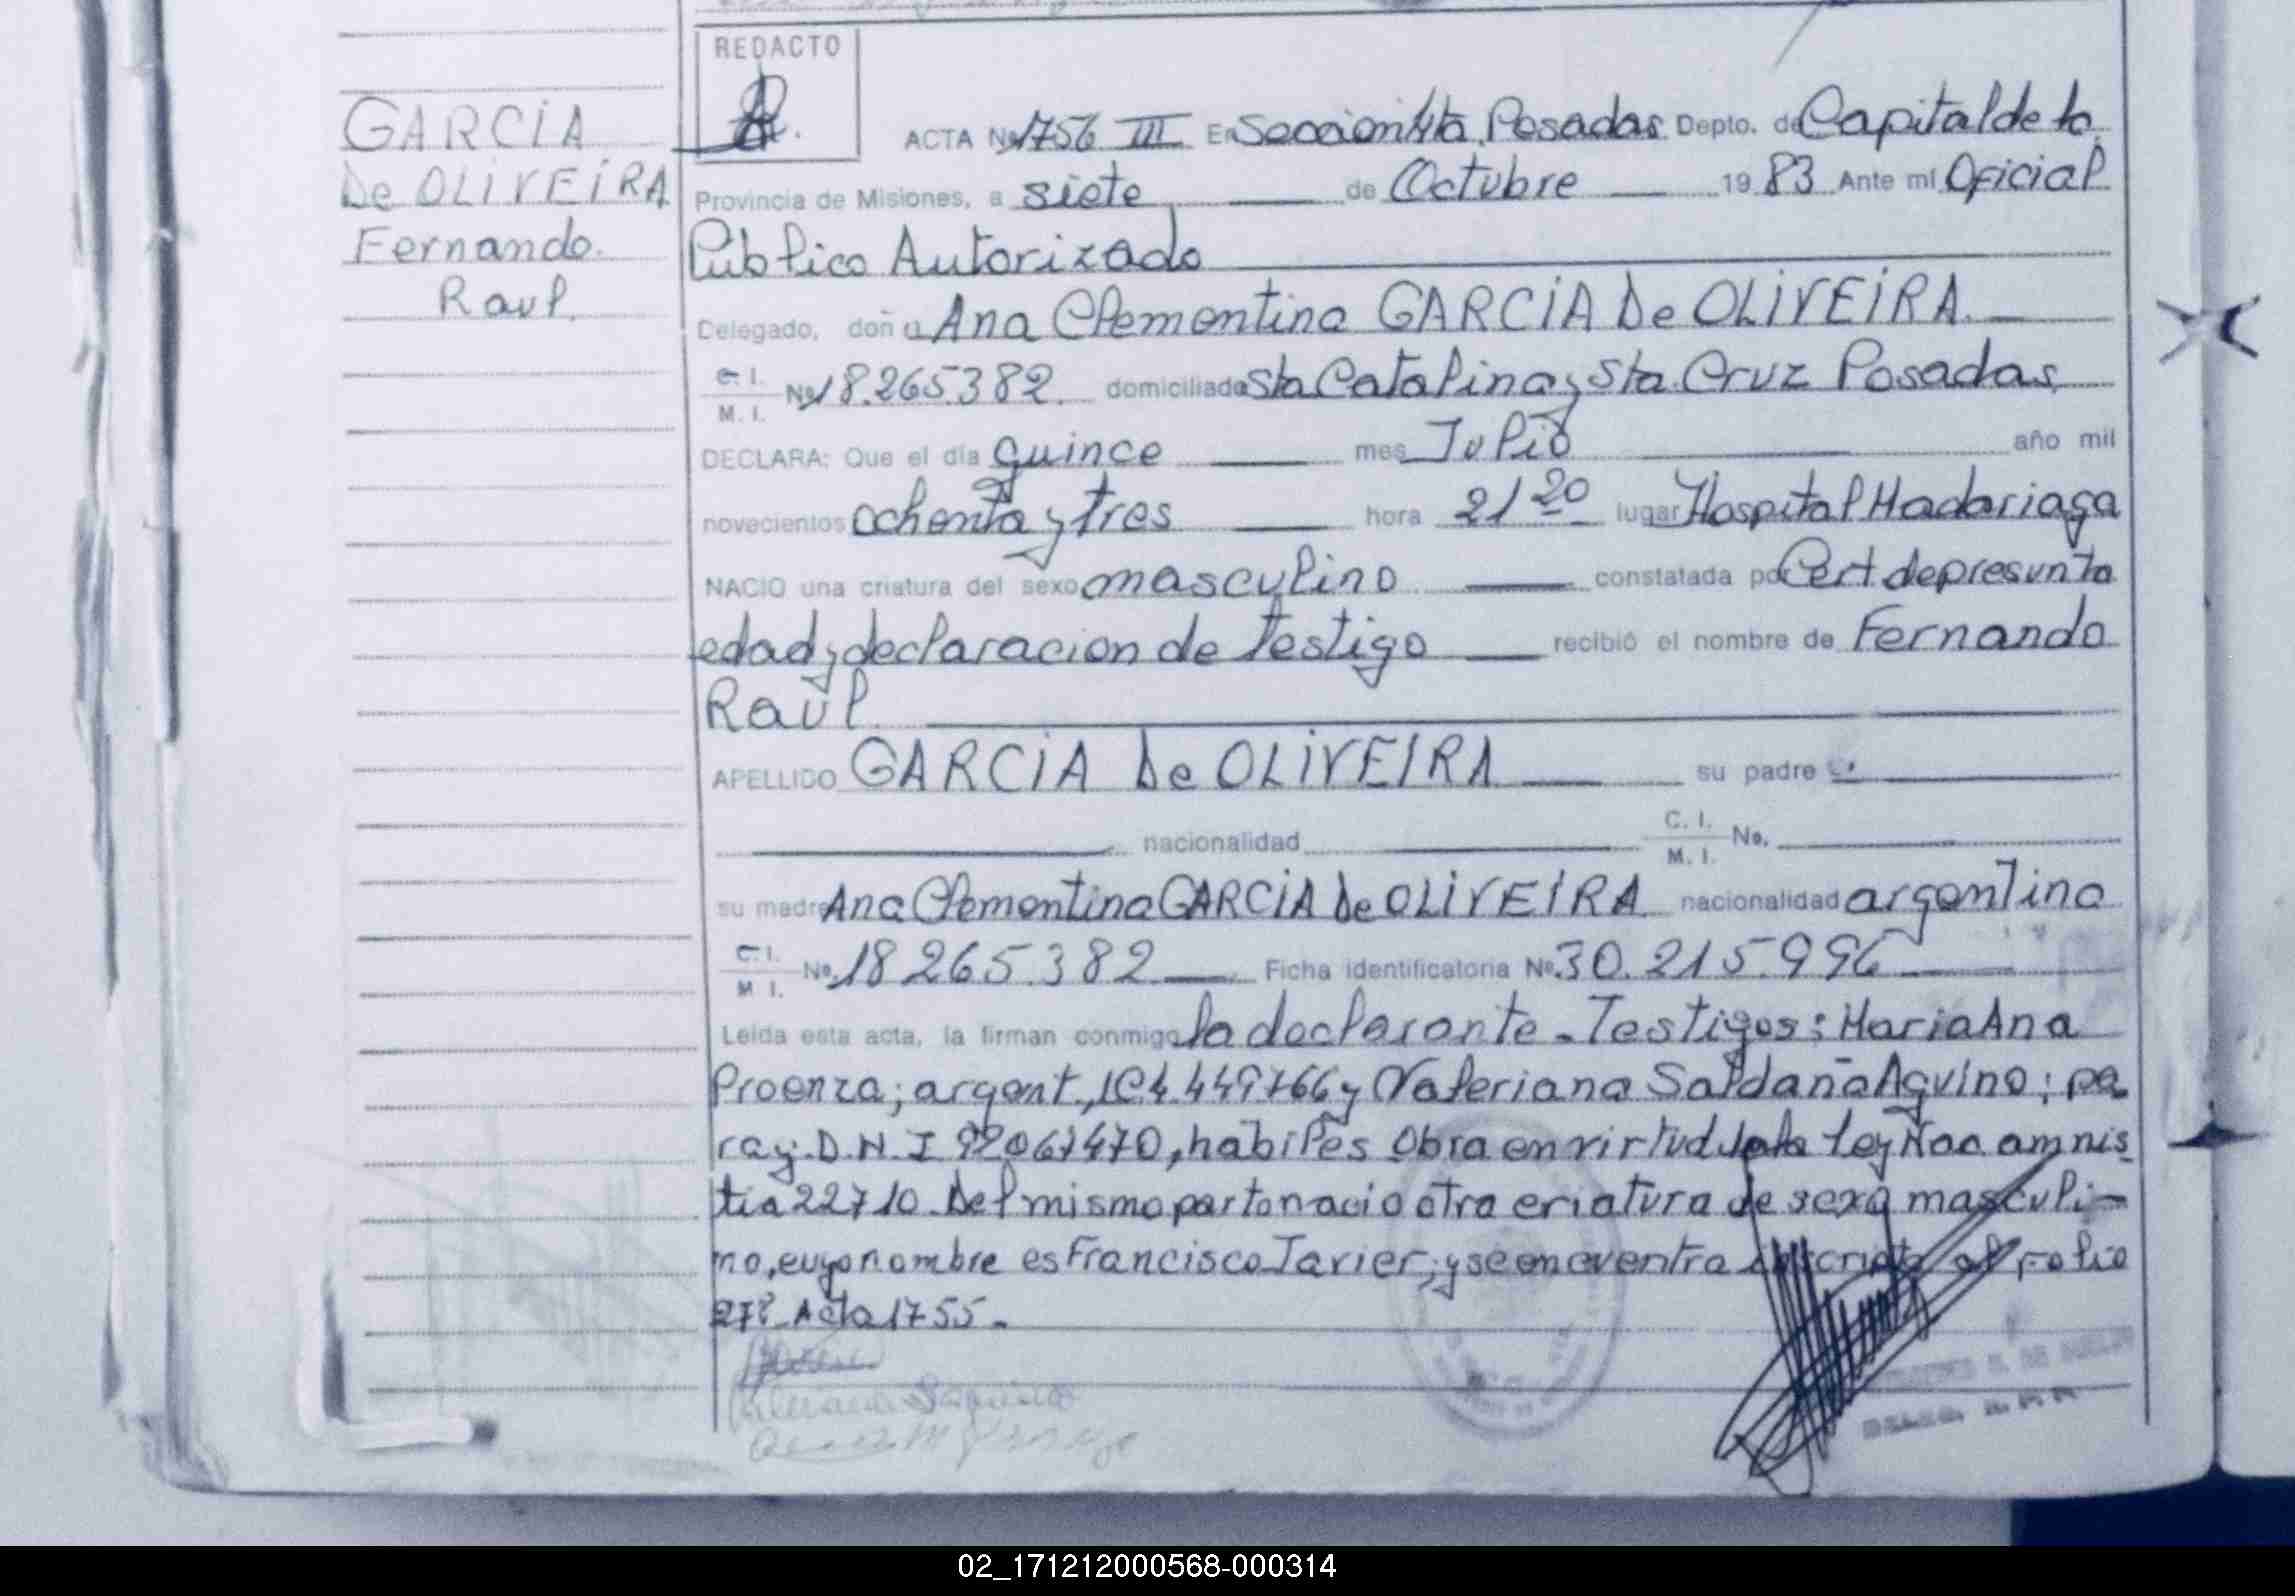 REDACTO
GARCIA
De OLIVEIRA
Fernando.
Raul.
ACTA Nº 1756 III En Sección 4ta. Posadas Depto. de Capital de la
Provincia de Misiones, a siete de Octubre 19 83 Ante mí Oficial
Público Autorizado
Delegado, doña Ana Clementina GARCIA De OLIVEIRA.
C. I. M. I. Nº 18.265.382. domiciliado Sta Catalina y Sta. Cruz Posadas.
DECLARA: Que el día quince mes Julio año mil
novecientos ochenta y tres hora 21 20 lugar Hospital Madariaga
NACIO una criatura del sexo masculino constatada por Cert de presunta
edad y declaracion de testigo recibió el nombre de Fernando
Raúl.
APELLIDO GARCIA De OLIVEIRA su padre
nacionalidad C. I. M. I. No.
su madre Ana Clementina GARCIA De OLIVEIRA nacionalidad argentina
C. I. M I. No. 18 265.382 Ficha identificatoria Nº 30.215.996
Leida esta acta, la firman conmigo la declarante. Testigos: Maria Ana
Proenza; argent., IC 4.449766 y Valeriana Saldaña Aquino; pa
ray. D.N.I 92067470, habiles Obra en virtud de la Ley Nac. amnis
tia 22710. Del mismo parto nacio otra criatura de sexo masculi-
no, cuyo nombre es Francisco Javier; y se encuentra inscripto al folio
Acta 1755.
02_171212000568-000314